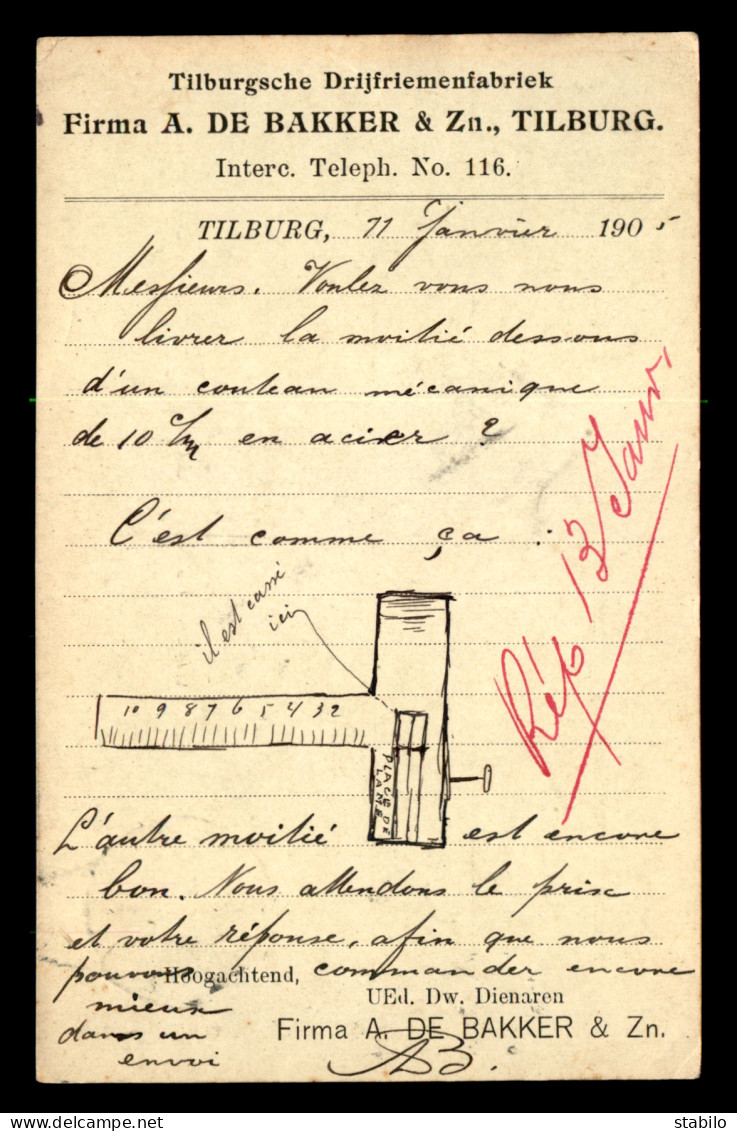 Tilburgsche Drijfriemenfabriek
Firma A. DE BAKKER & Zn., TILBURG.
Interc. Teleph. No. 116.
TILBURG, 11 Janvier 1905
Messieurs. Voulez vous nous
livrer la moitié dessous
d'un couteau mécanique
de 10 c/m en acier ?
C'est comme ça :
il est cassé
ici
10 9 8 7 6 5 4 3 2
PLACE DE
LAME
Rép 13 Janv.
L'autre moitié est encore
bon. Nous attendons le prix
et votre réponse, afin que nous
pouvons commander encore
Hoogachtend,
mieux
dans un
envoi
UEd. Dw. Dienaren
Firma A. DE BAKKER & Zn.
AB.
delcampe.net
stabilo